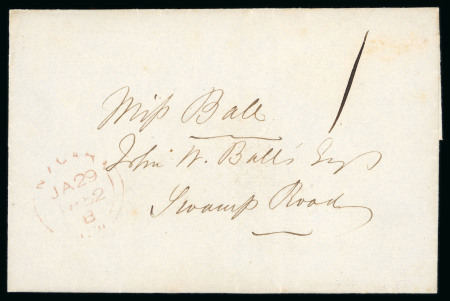 Miss Ball
John W. Ball's Esq
Swamp Road
1
JA 29
B